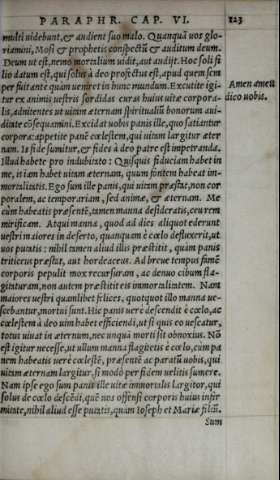 PARAPHR. CAP. VI.
223
multi uidebunt, & audient suo malo. Quanquã uos glo-
riamini, Mosi & prophetis conspectũ & auditum deum.
Deum ut est, nemo mortalium uidit, aut audijt. Hoc soli fi
lio datum est, qui solus à deo profectus est, apud quem sem
per fuit ante quàm ueniret in hunc mundum. Excutite igi-
tur ex animis uestris sordidas curas huius uitæ corpora-
lis, adnitentes ut uitam æternam spiritualiũ bonorum aui-
ditate cõsequamini. Excidat uobis panis ille, quo satiantur
corpora: appetite panẽ cœlestem, qui uitam largitur æter
nam. Is fide sumitur, & fides à deo patre est impetranda.
Illud habete pro indubitato: Quisquis fiduciam habet in
me, is iam habet uitam æternam, quum fontem habeat im-
mortalitatis. Ego sum ille panis, qui uitam præstat, non cor
poralem, ac temporariam, sed animæ, & æternam. Me
cùm habeatis præsentẽ, tamen manna desideratis, ceu rem
mirificam. Atqui manna, quod ad dies aliquot ederunt
uestri maiores in deserto, quanquam è cœlo defluxerit, ut
uos putatis: nihil tamen aliud illis præstitit, quàm panis
triticeus præstat, aut hordeaceus. Ad breue tempus famẽ
corporis pepulit mox recursuram, ac denuo cibum fla-
gitaturam, non autem præstitit eis immortalitatem. Nam
maiores uestri quamlibet felices, quotquot illo manna ue-
scebantur, mortui sunt. Hic panis uerè descendit è cœlo, ac
cœlestem à deo uim habet efficiendi, ut si quis eo uescatur,
totus uiuat in æternum, nec unquã morti sit obnoxius. Nõ
est igitur necesse, ut ullum manna flagitetis è cœlo, cùm pa
nem habeatis uerè cœlestẽ, præsentẽ ac paratũ uobis, qui
uitam æternam largitur, si modò per fidem uelitis sumere.
Nam ipse ego sum panis ille uitæ immortalis largitor, qui
solus de cœlo descẽdi, quẽ uos offensi corporis huius infir
mitate, nihil aliud esse putatis, quàm Ioseph et Mariæ filiũ.
Sum
Amen amẽ
dico uobis.